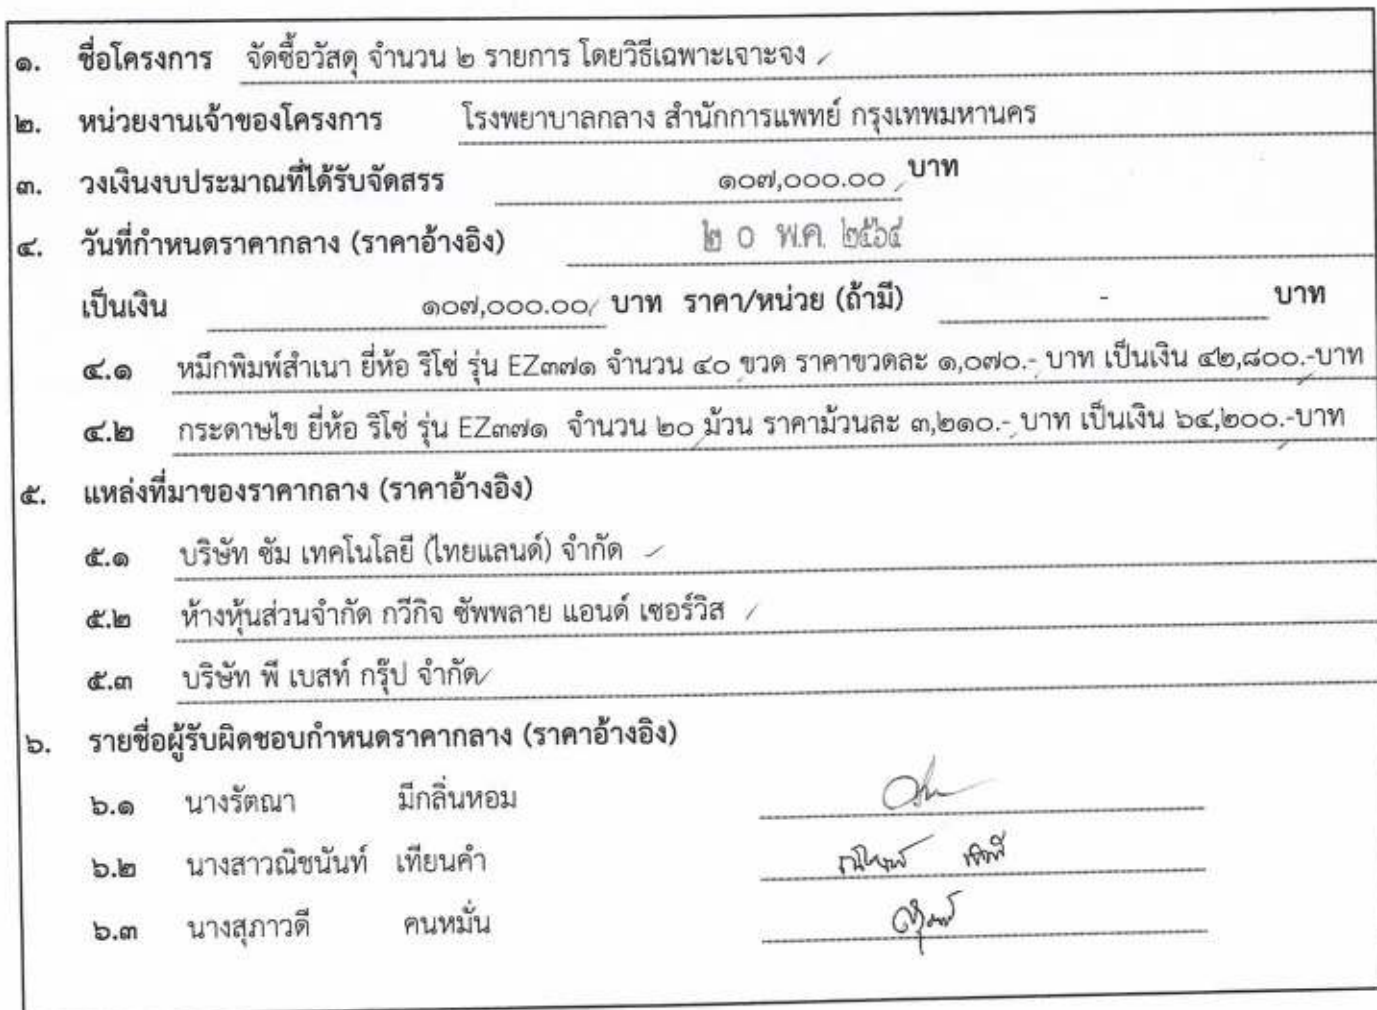 ๑. ชื่อโครงการ จัดซื้อวัสดุ จำนวน ๒ รายการ โดยวิธีเฉพาะเจาะจง
๒. หน่วยงานเจ้าของโครงการ โรงพยาบาลกลาง สำนักการแพทย์ กรุงเทพมหานคร
๓. วงเงินงบประมาณที่ได้รับจัดสรร ๑๐๗,๐๐๐.๐๐ บาท
๔. วันที่กำหนดราคากลาง (ราคาอ้างอิง) ๒๐ พ.ค. ๒๕๖๔
เป็นเงิน ๑๐๗,๐๐๐.๐๐ บาท ราคา/หน่วย (ถ้ามี) - บาท
๔.๑ หมึกพิมพ์สำเนา ยี่ห้อ ริโซ่ รุ่น EZ๓๗๑ จำนวน ๔๐ ขวด ราคาขวดละ ๑,๐๗๐.- บาท เป็นเงิน ๔๒,๘๐๐.-บาท
๔.๒ กระดาษไข ยี่ห้อ ริโซ่ รุ่น EZ๓๗๑ จำนวน ๒๐ ม้วน ราคาม้วนละ ๓,๒๑๐.- บาท เป็นเงิน ๖๔,๒๐๐.-บาท
๕. แหล่งที่มาของราคากลาง (ราคาอ้างอิง)
๕.๑ บริษัท ซัม เทคโนโลยี (ไทยแลนด์) จำกัด
๕.๒ ห้างหุ้นส่วนจำกัด กวีกิจ ซัพพลาย แอนด์ เซอร์วิส
๕.๓ บริษัท พี เบสท์ กรุ๊ป จำกัด
๖. รายชื่อผู้รับผิดชอบกำหนดราคากลาง (ราคาอ้างอิง)
๖.๑ นางรัตณา มีกลิ่นหอม
๖.๒ นางสาวณิชนันท์ เทียนคำ
๖.๓ นางสุภาวดี คนหมั่น